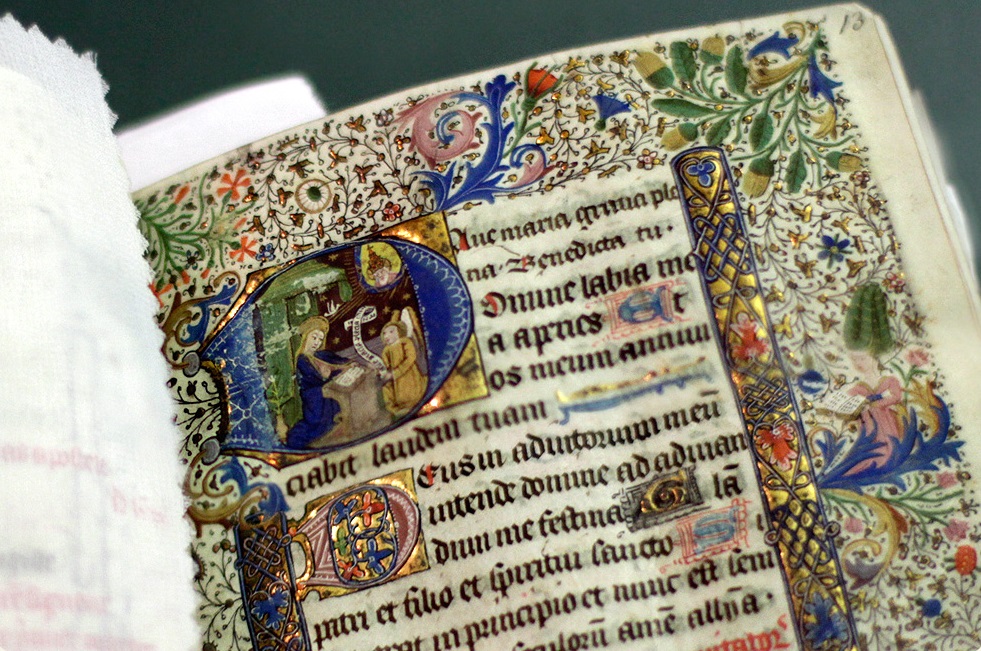 13
Aue maria gratia ple
na. Benedicta tu.
Domine labia me
a aperies Et
os meum annun
ciabit laudem tuam
Deus in adiutorium meū
intende domine ad adiuuan
dum me festina Gla
patri et filio et spiritui sancto
erat in principio et nunc est sem
seculorū amē allīa.